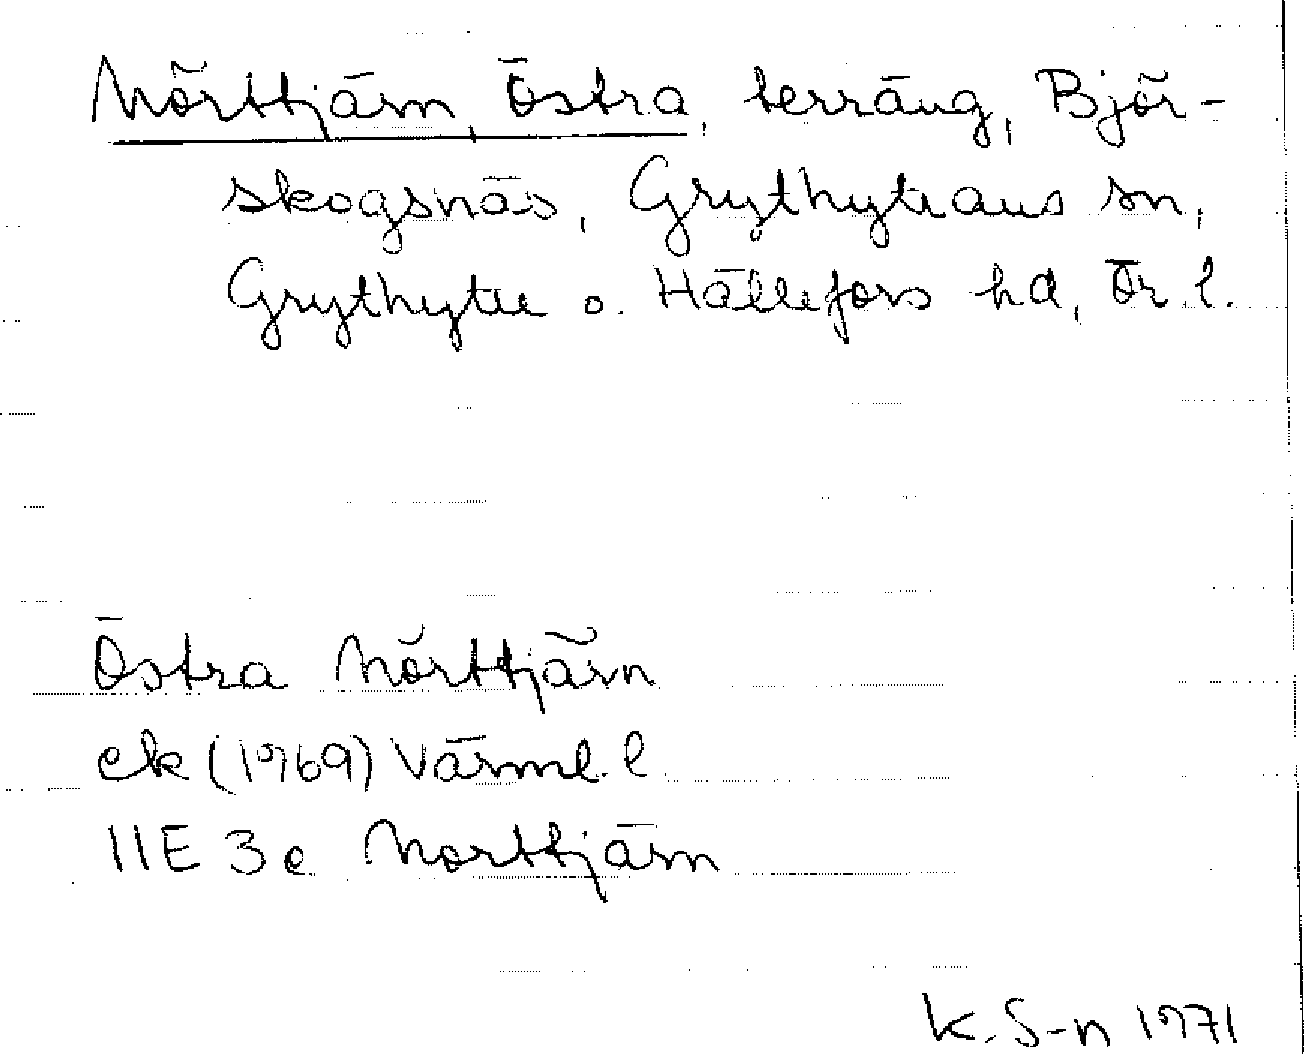 Mörttjärn, Östra, terräng, Björ-
skogsnäs, Grythyttans sn,
Grythytte o. Hällefors hd, Ör. l.
Östra Mörttjärn
ek (1969) Värml. l
11E 3e Morttjärn
K. S-n 1971